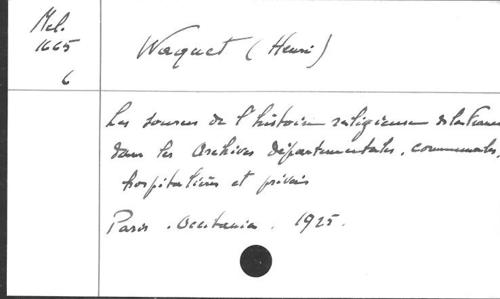 Mel.
1665
6
Waquet (Henri)
Les sources de l'histoire religieuse de la France
dans les Archives départementales, communales,
hospitalières et privées
Paris. Occitania. 1925.